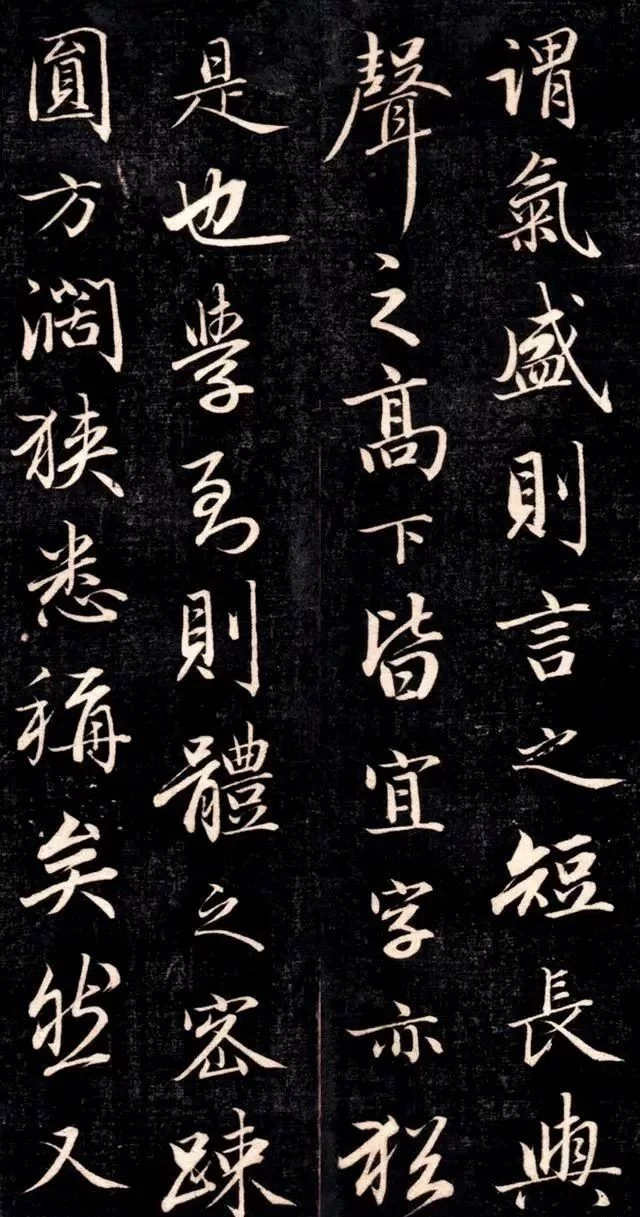 謂氣盛則言之短長與
聲之高下皆宜字亦猶
是也學到則體之密踈
圓方濶狹悉稱矣然又